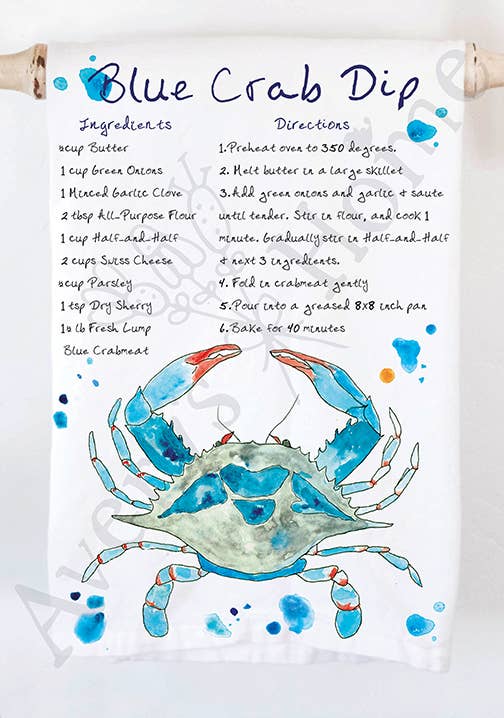 Blue Crab Dip
Ingredients
cup Butter
1 cup Green Onions
1 Minced Garlic Clove
2 tbsp All-Purpose Flour
1 cup Half-and-Half
2 cups Swiss Cheese
cup Parsley
1 tsp Dry Sherry
lb Fresh Lump
Blue Crabmeat
Directions
1. Preheat oven to 350 degrees.
2. Melt butter in a large skillet
3. Add green onions and garlic & saute
until tender. Stir in flour, and cook 1
minute. Gradually stir in Half-and-Half
& next 3 ingredients.
4. Fold in crabmeat gently
5. Pour into a greased 8x8 inch pan
6. Bake for 40 minutes
Avenis Home